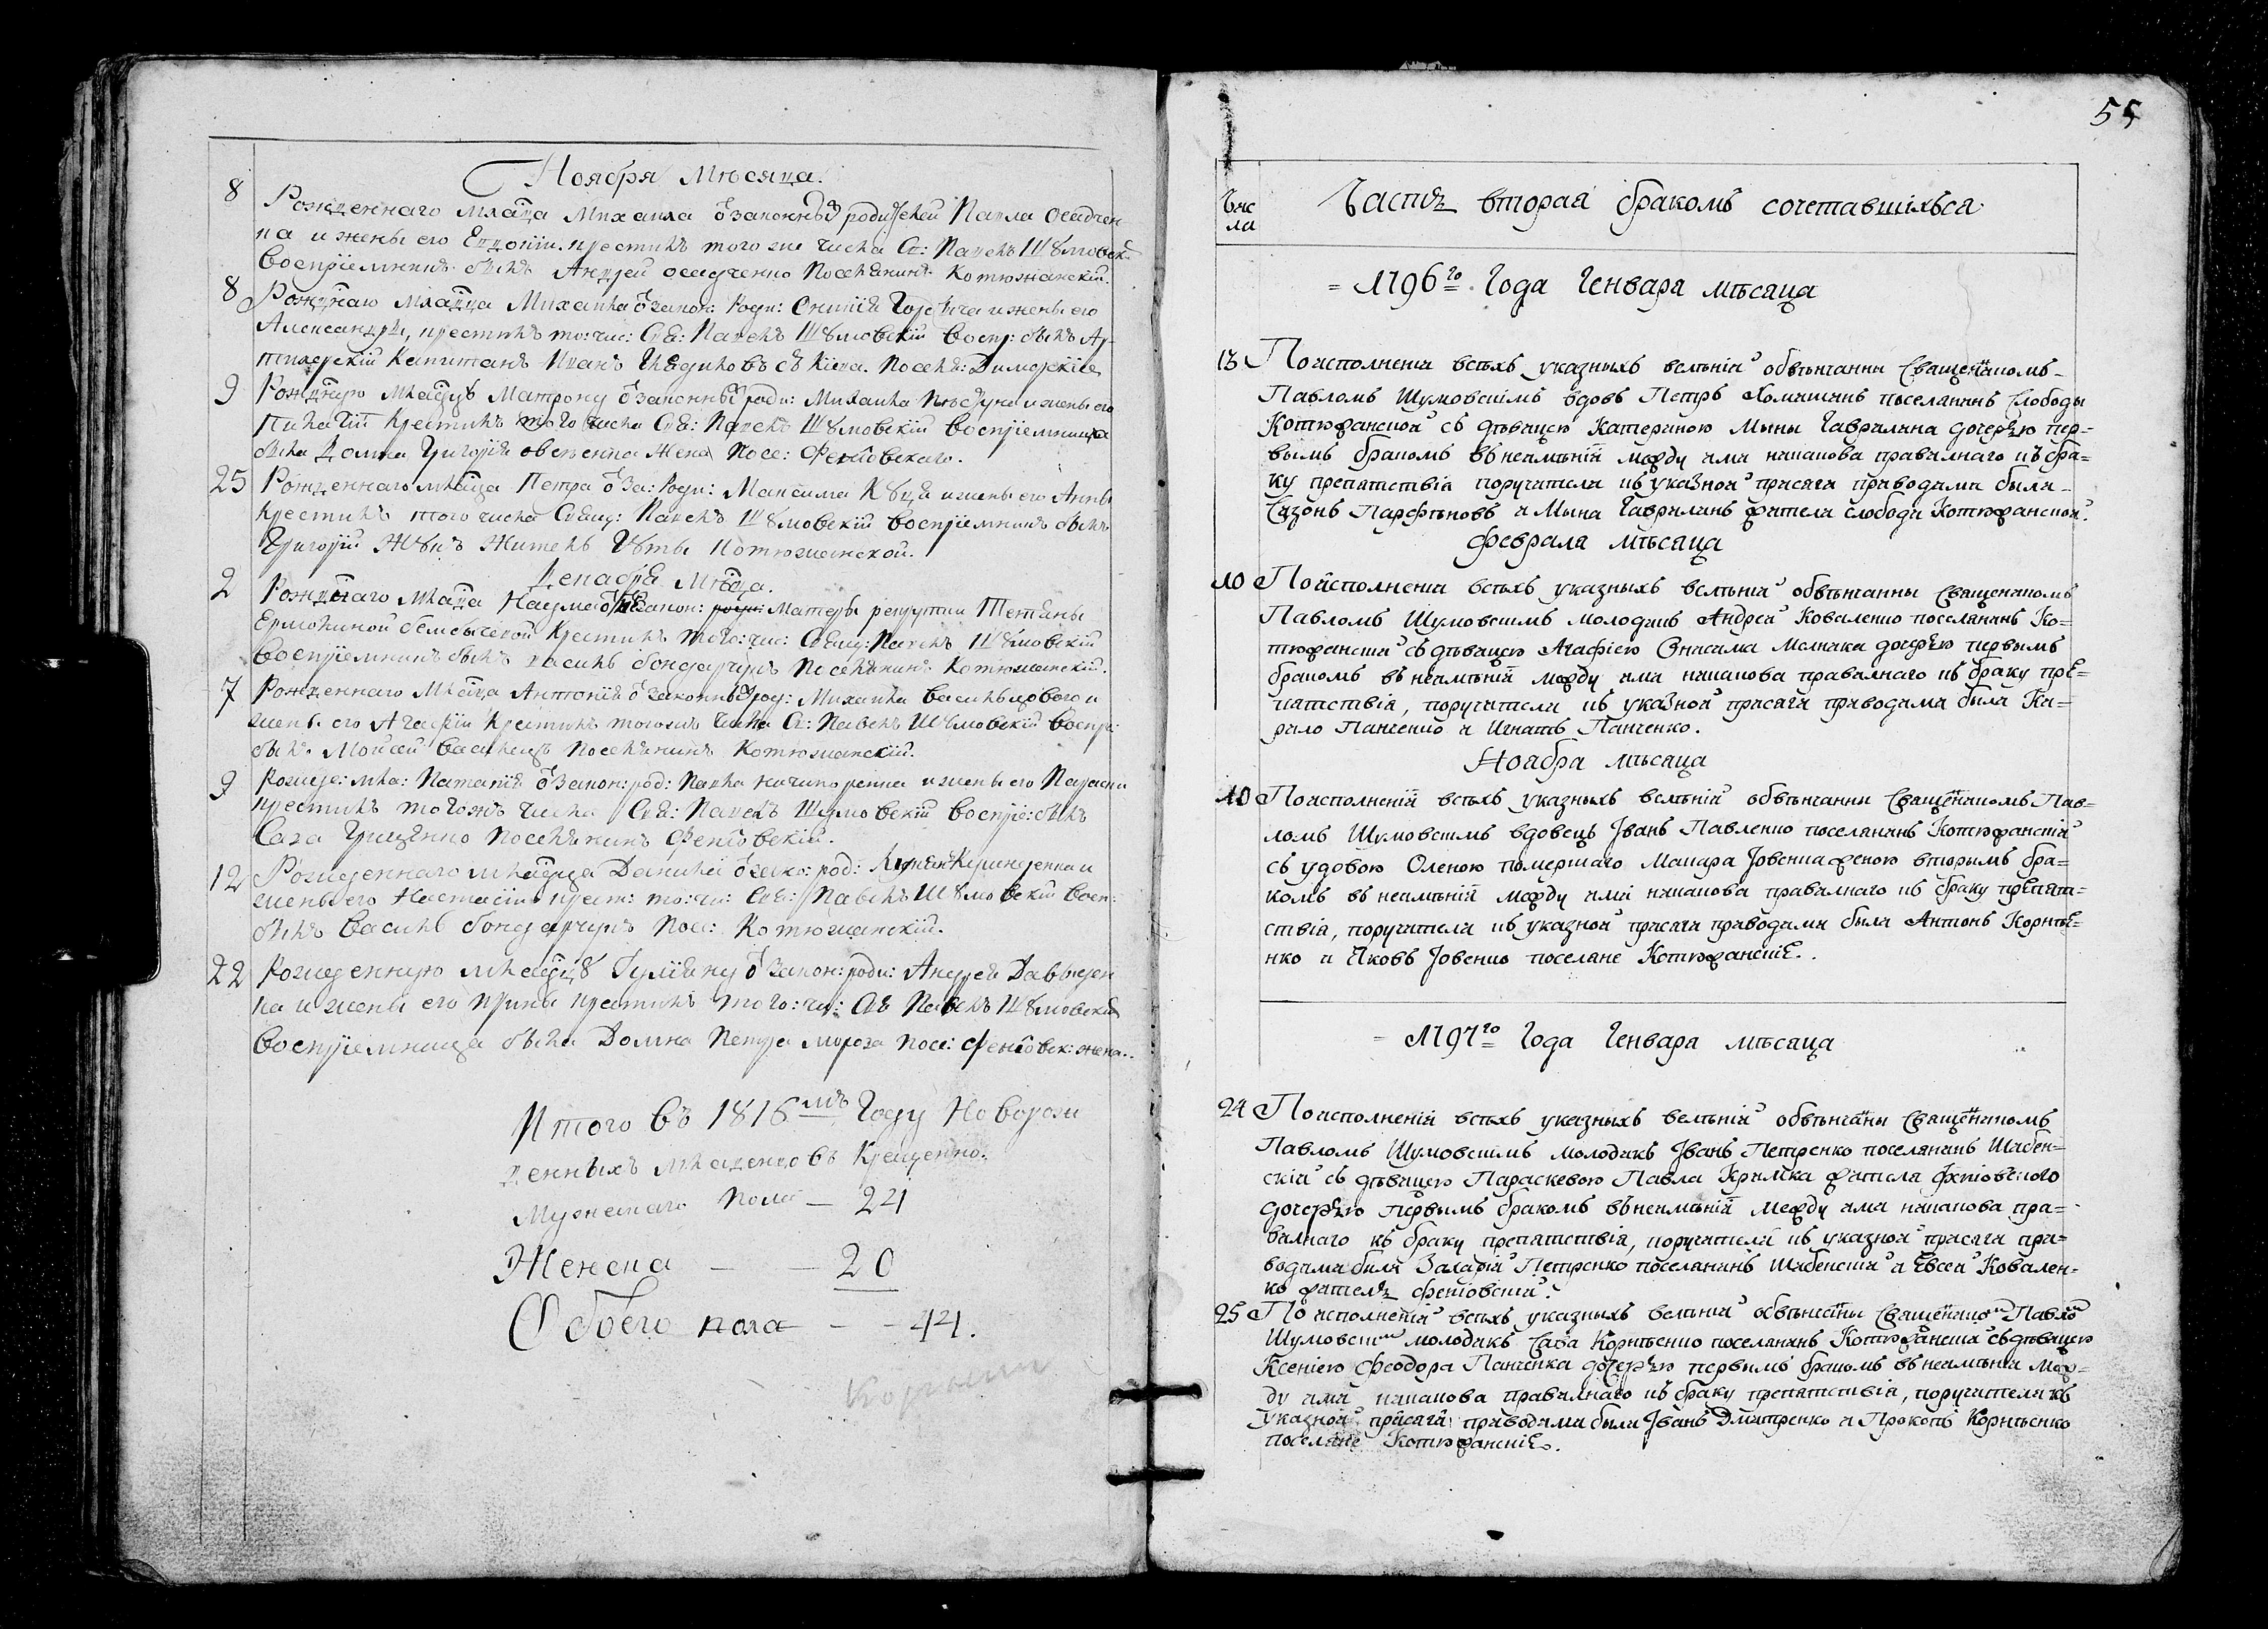 Ноября Мѣсяца.
8 Рожденнаго млаⷣца Михаила ѿ законныⷯ родиⷮелей Павла Осадчен
ка и жены его Евдокіи. крестилъ того же числа Сⷡ: Павелъ Шꙋмовскі
Воспріемникъ былъ Андрей осадченко Поселянинъ Котюжанскій.
8 Рождⷩнаго младⷩца Михаила ѿ закон: Роди: и жены его
Александры, крестилъ то: чис: Свя: Павелъ Шꙋмовскій Воспр: былъ Ар-
тилерскій Капитанъ Иванъ съ Кіева.
9 Рождⷩную млаⷣцꙋ Матрону ѿ законныⷯ роди: Михаила и жены его
крестилъ того числа Свя: Павелъ Шꙋмовскій Воспріемница
была Домка Григорія жена Посе: Фентовскаго.
25 Рожденнаго млаⷣца Петра ѿ За: Роди: Максима и жены его Анны
крестилъ того числа Свящ: Павелъ Шꙋмовскій воспріемникъ былъ
Григорій Житель Котюжанской.
Декабря Мⷭца.
2 Рождⷩнаго млаⷣца Наума ѿ незакон: роди: Матеры рекрутки Тетяны
Ермолиной Крестилъ того: чис: Свящ: Павелъ Шꙋмовскій
Воспріемникъ былъ василь бондарчукъ Поселянинъ Котюжанскій.
7 Рожденнаго Млаⷣца Антонія ѿ законныⷯ род: Михаила васильцового и
жены его Агафіи Крестилъ тогожъ числа Сⷡ: Павелъ Шꙋмовскій воспрі:
былъ Мойсей Василецъ Поселянинъ Котюжанскій.
9 Рожде: мла: Наталія ѿ Закон: род: Павла ничипоренка и жены его Параски
крестилъ тогожъ числа Свя: Павелъ Шумовскій воспріе: былъ
Сава Грищенко Поселянинъ Фентовскій.
12 Рожденнаго млаⷣца Даниила ѿ зако: род: и
жены его Настасіи крест: то: чи: Свя: Павелъ Шꙋмовскій Восп:
былъ Василь бондарчукъ Пос: Котюжанскій.
22 Рожденную млаⷣцꙋ Гуліяну ѿ Закон: роди: Андрея Давыден
ка и жены его Ирины крестилъ того: чи: Свя Павелъ Шꙋмовскій
Воспріемница была Домна Петра мороза посе: Фентовск: жена.
Итого Въ 1816ᵐᵗ Году Новорож
денныхъ младенцовъ Крещенно.
Мужескаго Пола — 24
Женска — — 20
Обоего пола — — 44.
55
Чис
ла
Часть вторая бракомъ сочетавшихься
= 1796го Года Генваря мѣсаца
13 По исполненіи всѣхъ указныхъ велѣній обвѣнчанны Священникомъ
Павломъ Шумовскимъ вдовъ Петръ Хомишинъ поселянинъ Слободы
Котюжанской съ дѣвицею Катериною Мины Гаврилина дочерью пер=
вымъ бракомъ въ неимѣніи между ими никакова правилнаго къ бра=
ку препятствія поручители къ указной присяги приводими были
Сазонъ Парфѣновъ и Мина Гаврилинъ жители слободи Котюжанской.
Февраля мѣсаца
10 По исполненіи всѣхъ указныхъ велѣній обвѣнчанны Священикомъ
Павломъ Шумовскимъ молодикъ Андрей Коваленко поселянинъ Ко=
тюжанскій съ дѣвицею Агафіею Онисима Мелника дочерью первымъ
бракомъ въ неимѣніи между ими никакова правилнаго къ браку пре=
пятствія, поручители къ указной присяги приводими были Ки=
рило Панченко и Игнатъ Панченко.
Ноября мѣсаца
10 По исполненій всѣхъ указныхъ велѣній обвѣнчанны Священикомъ Пав=
ломъ Шумовскимъ вдовецъ Іванъ Павленко поселянинъ Котюжанскій
съ удовою Оленою помершаго Макара Іовенка женою вторымъ бра=
комъ въ неимѣній между ими никакова правилнаго къ браку препят=
ствія, поручители къ указной присяги приводими были Антонъ Корнѣе=
нко и Яковъ Іовенко поселяне Котюжанскіе.
= 1797го Года Генваря мѣсаца
24 По исполненій всѣхъ указныхъ велѣній обвѣнчаны Священикомъ
Павломъ Шумовскимъ молодикъ Іванъ Петренко поселянинъ Шибен=
скій съ дѣвицею Параскевою Павла Кримка жителя Фентовского
дочерью первымъ бракомъ въ неимѣній между ими никакова пра=
вилнаго къ браку препятствія, поручители къ указной присяги при=
водими били Захарій Петренко поселянинъ Шибенскій и Евсей Ковален=
ко жители Фентовскій.
25 По исполненій всѣхъ указныхъ велѣній обвѣнчаны Священикоⷨ Павлоⷨ
Шумовскиⷨ молодикъ Сава Корнѣенко поселянинъ Котюжанскій съ дѣвицею
Ксеніею Феодора Панченка дочерью первымъ бракомъ въ неимѣніи меж=
ду ими никакова правилнаго къ браку препятствія, поручители къ
указной присяги приводими были Іванъ Дмитренко и Прокопъ Корнѣенко
поселяне Котюжанскіе.